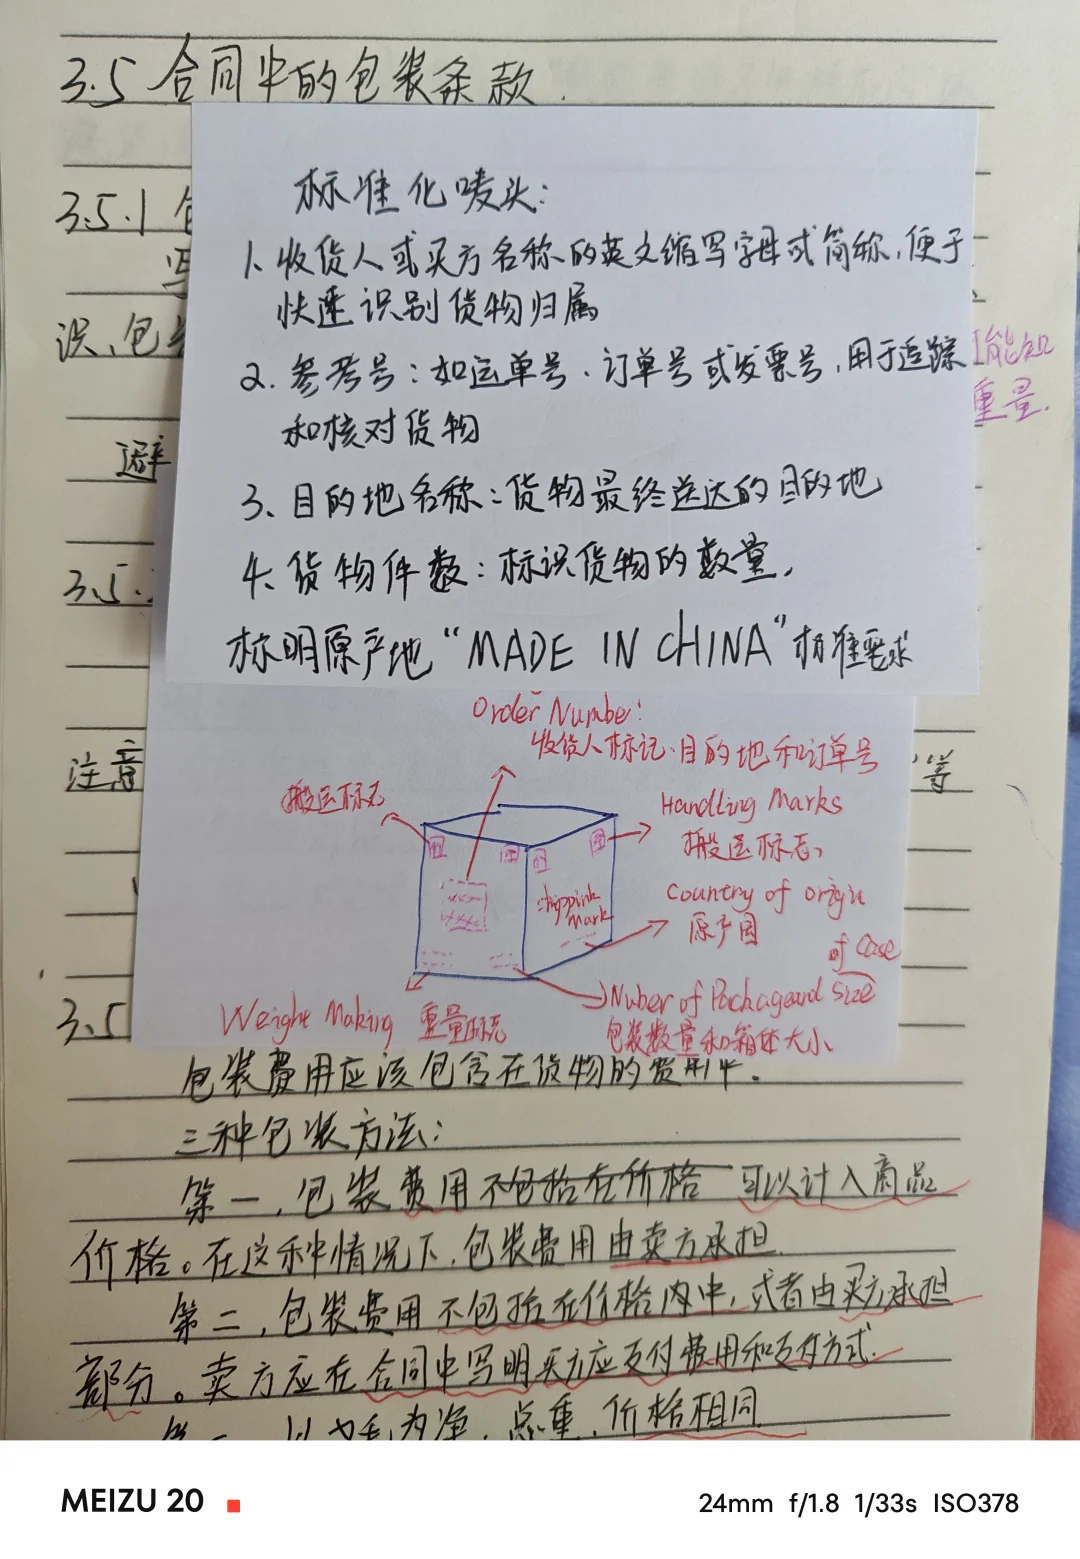 3.5 合同中的包装条款.
标准化唛头:
3.5.1
1、收货人或买方名称的英文缩写字母或简称,便于
快速识别货物归属
误、包
能如
2. 参考号:如运单号、订单号或发票号,用于追踪
重量.
和核对货物
避
3、目的地名称:货物最终送达的目的地
4、货物件数:标识货物的数量,
3.5.
标明原产地“MADE IN CHINA”标准要求
Order Number:
收货人标记、目的地和订单号
注意
等
搬运标志
Handling Marks
搬运标志、
shippink
mark
Country of origin
原产国
of Case
Weight Making 重量标志
Nuber of Packageand size
包装数量和箱体大小
3.5
包装费用应该包含在货物的费用中.
三种包装方法:
第一,包装费用不包括在价格 可以计入商品
价格。在这种情况下,包装费用由卖方承担.
第二,包装费用不包括在价格内中,或者由买方承担
部分。卖方应在合同中写明买方应支付费用和支付方式.
以毛为净,总重,价格相同
MEIZU 20
24mm f/1.8 1/33s ISO378